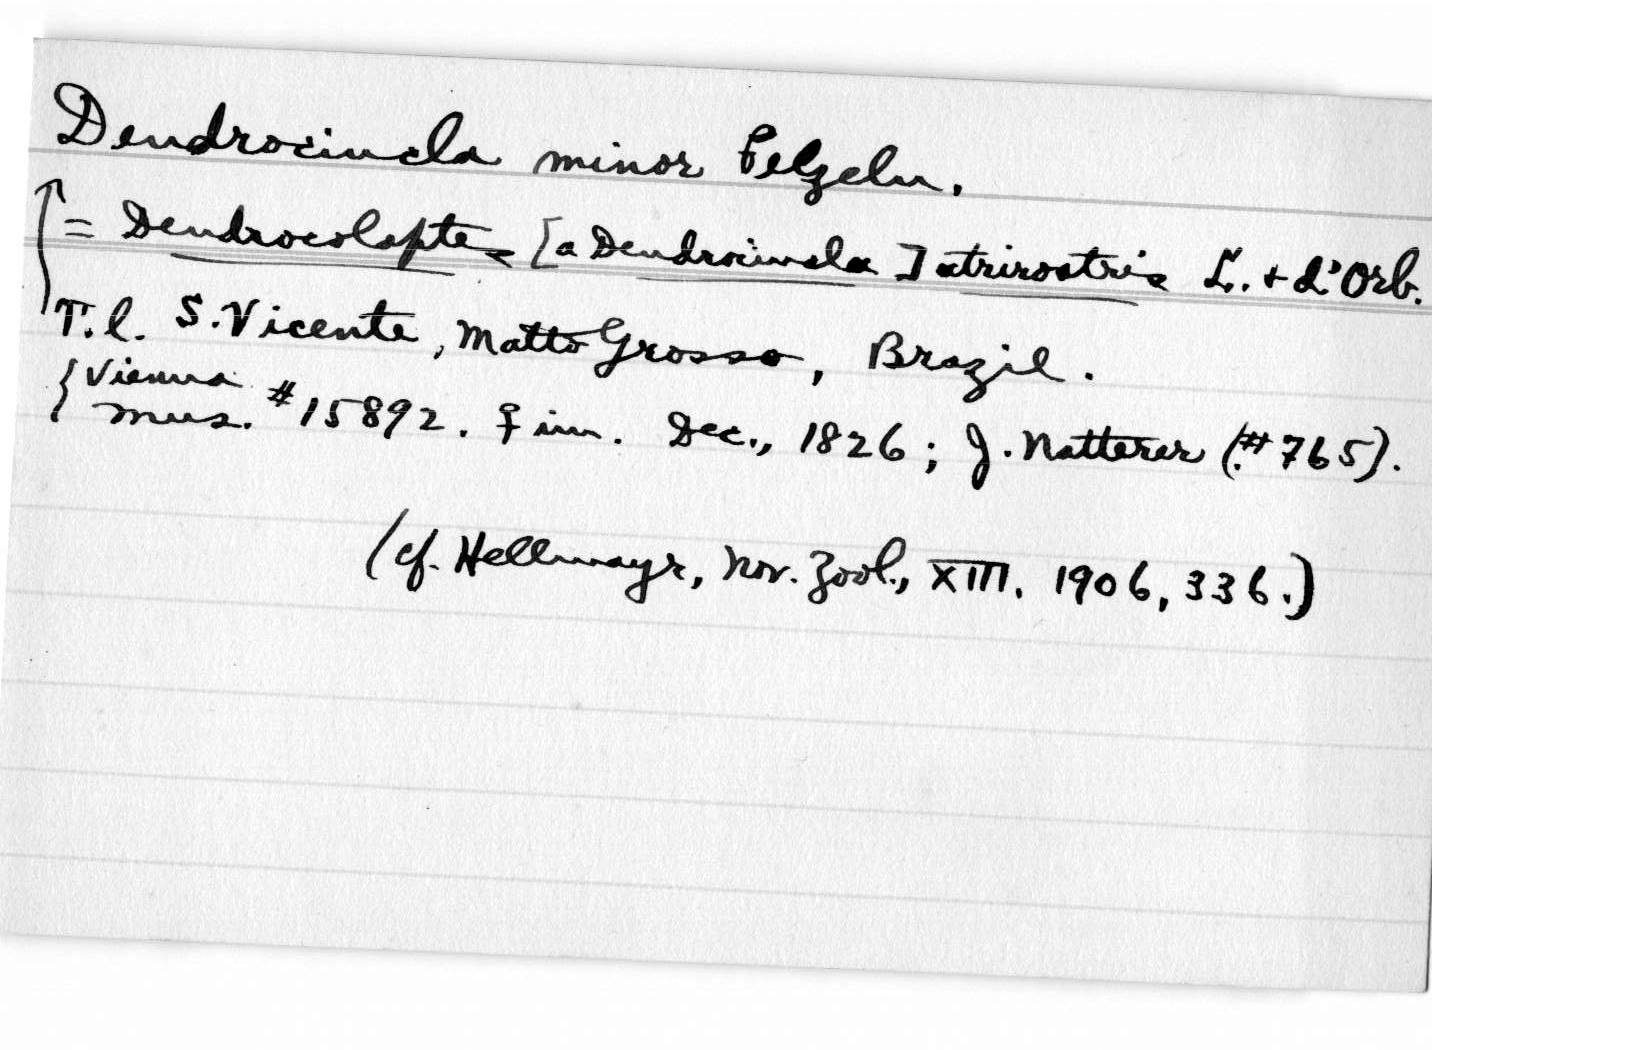 Dendrocincla minor Pelzeln.
= Dendrocolaptes [a Dendrocincla] atrirostris L. + d'Orb.
T.l. S. Vicente, Matto Grosso, Brazil.
{Vienna Mus. #15892. ♀ im. Dec., 1826; J. Natterer (#765).
(cf. Hellmayr, Nov. Zool., XIII. 1906, 336.)